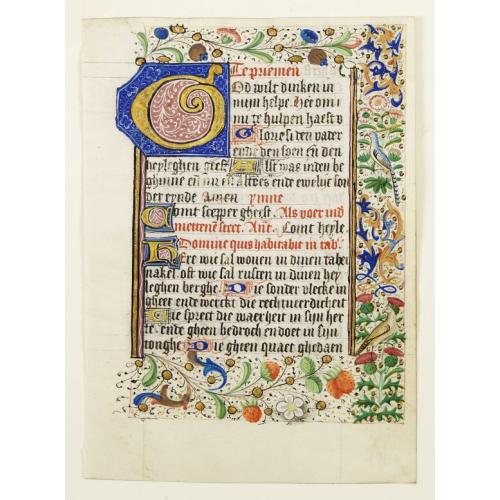 Te priemen
God wilt dinken in
mijn helpe. Here om i
mi te hulpen haest v
Glorie si den vader
ende den soen en den
heyleghen gheest Alst was inden be
ghinne en nu en altoes ende ewelijc son
der eynde Amen ymne
Comt scepper gheest. Als voer in d
mettene steet. Ane. Comt heyle
Domine quis habitabit in tab
Here wie sal wonen in dinen taber
nakel. oft wie sal rusten in dinen hey
leghen berghe Die sonder vlecke in
gheet ende werckt die rechtuerdicheit
Die sprect die waerheit in sijn her
te. ende gheen bedroch en doet in sijn
tonghe Die gheen quaet ghedaen